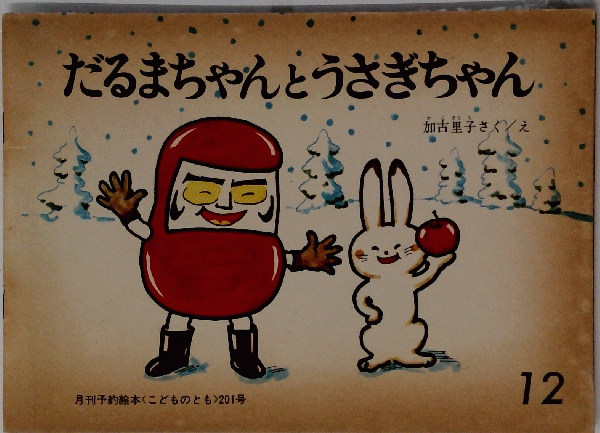 だるまちゃんとうさぎちゃん
加古里子さく/え
月刊予約絵本〈こどものとも〉201号
12